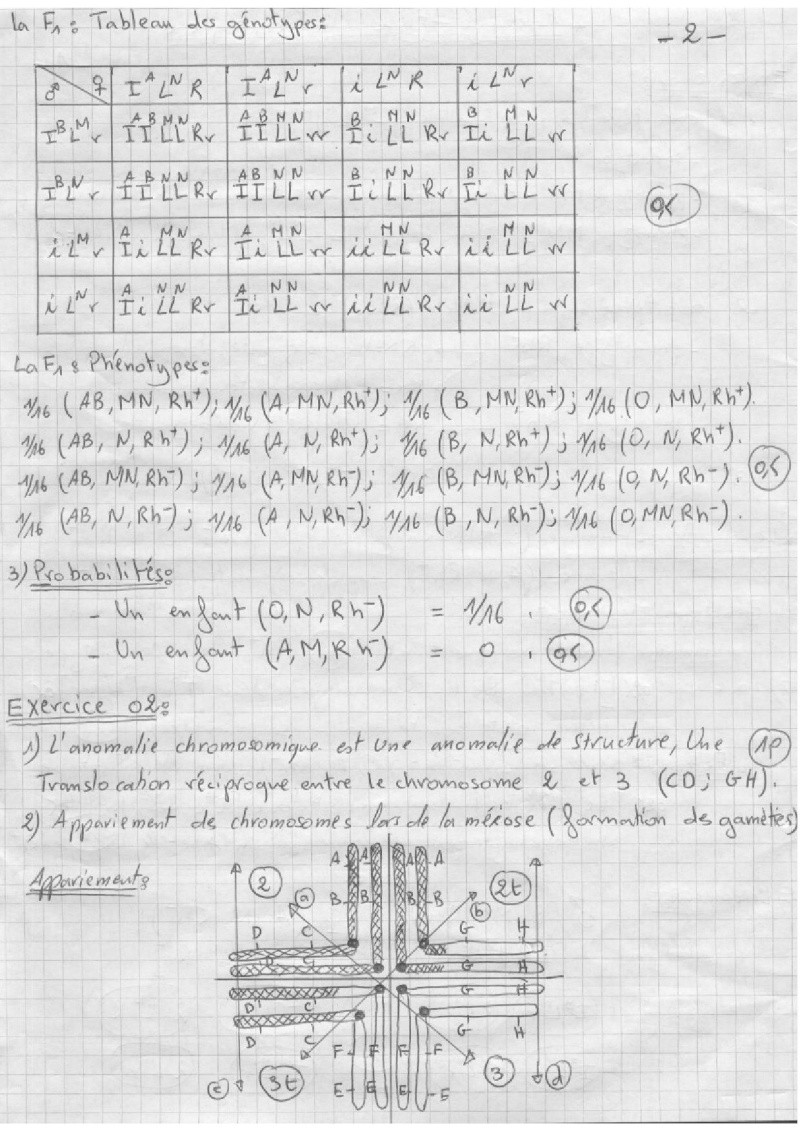 La F₁ : Tableau des génotypes :
- 2 -
♂ ♀ | Iᴬ Lᴺ R | Iᴬ Lᴺ r | i Lᴺ R | i Lᴺ r
Iᴮ Lᴹ r | IᴬIᴮ LᴹLᴺ Rr | IᴬIᴮ LᴹLᴺ rr | Iᴮi LᴹLᴺ Rr | Iᴮi LᴹLᴺ rr
Iᴮ Lᴺ r | IᴬIᴮ LᴺLᴺ Rr | IᴬIᴮ LᴺLᴺ rr | Iᴮi LᴺLᴺ Rr | Iᴮi LᴺLᴺ rr
0,5
i Lᴹ r | Iᴬi LᴹLᴺ Rr | Iᴬi LᴹLᴺ rr | ii LᴹLᴺ Rr | ii LᴹLᴺ rr
i Lᴺ r | Iᴬi LᴺLᴺ Rr | Iᴬi LᴺLᴺ rr | ii LᴺLᴺ Rr | ii LᴺLᴺ rr
La F₁ : Phénotypes :
1/16 (AB, MN, Rh⁺) ; 1/16 (A, MN, Rh⁺) ; 1/16 (B, MN, Rh⁺) ; 1/16 (O, MN, Rh⁺).
1/16 (AB, N, Rh⁺) ; 1/16 (A, N, Rh⁺) ; 1/16 (B, N, Rh⁺) ; 1/16 (O, N, Rh⁺).
1/16 (AB, MN, Rh⁻) ; 1/16 (A, MN, Rh⁻) ; 1/16 (B, MN, Rh⁻) ; 1/16 (O, N, Rh⁻). 0,5
1/16 (AB, N, Rh⁻) ; 1/16 (A, N, Rh⁻) ; 1/16 (B, N, Rh⁻) ; 1/16 (O, MN, Rh⁻).
3) Probabilités :
- Un enfant (O, N, Rh⁻) = 1/16 . 0,5
- Un enfant (A, M, Rh⁻) = 0 . 0,5
Exercice 02 :
1) L'anomalie chromosomique est une anomalie de structure, Une 1P
Translocation réciproque entre le chromosome 2 et 3 (CD ; GH).
2) Appariement des chromosomes lors de la méiose (formation des gamètes)
Appariement :
A A A A
2 a 2t
B B B B b
D C G H
D C G H
G H
D C G H
D C G H
F F F F
c 3t 3 d
E E E E